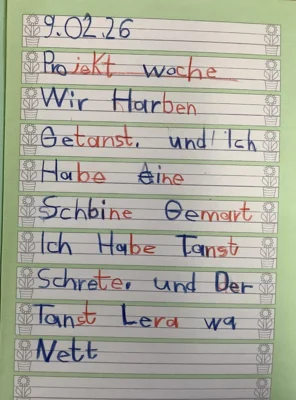 9.02.26
Projekt woche
Wir Harben
Getanst. und Ich
Habe eine
Schbine Gemart
Ich Habe Tanst
Schrete. und Der
Tanst Lera wa
Nett